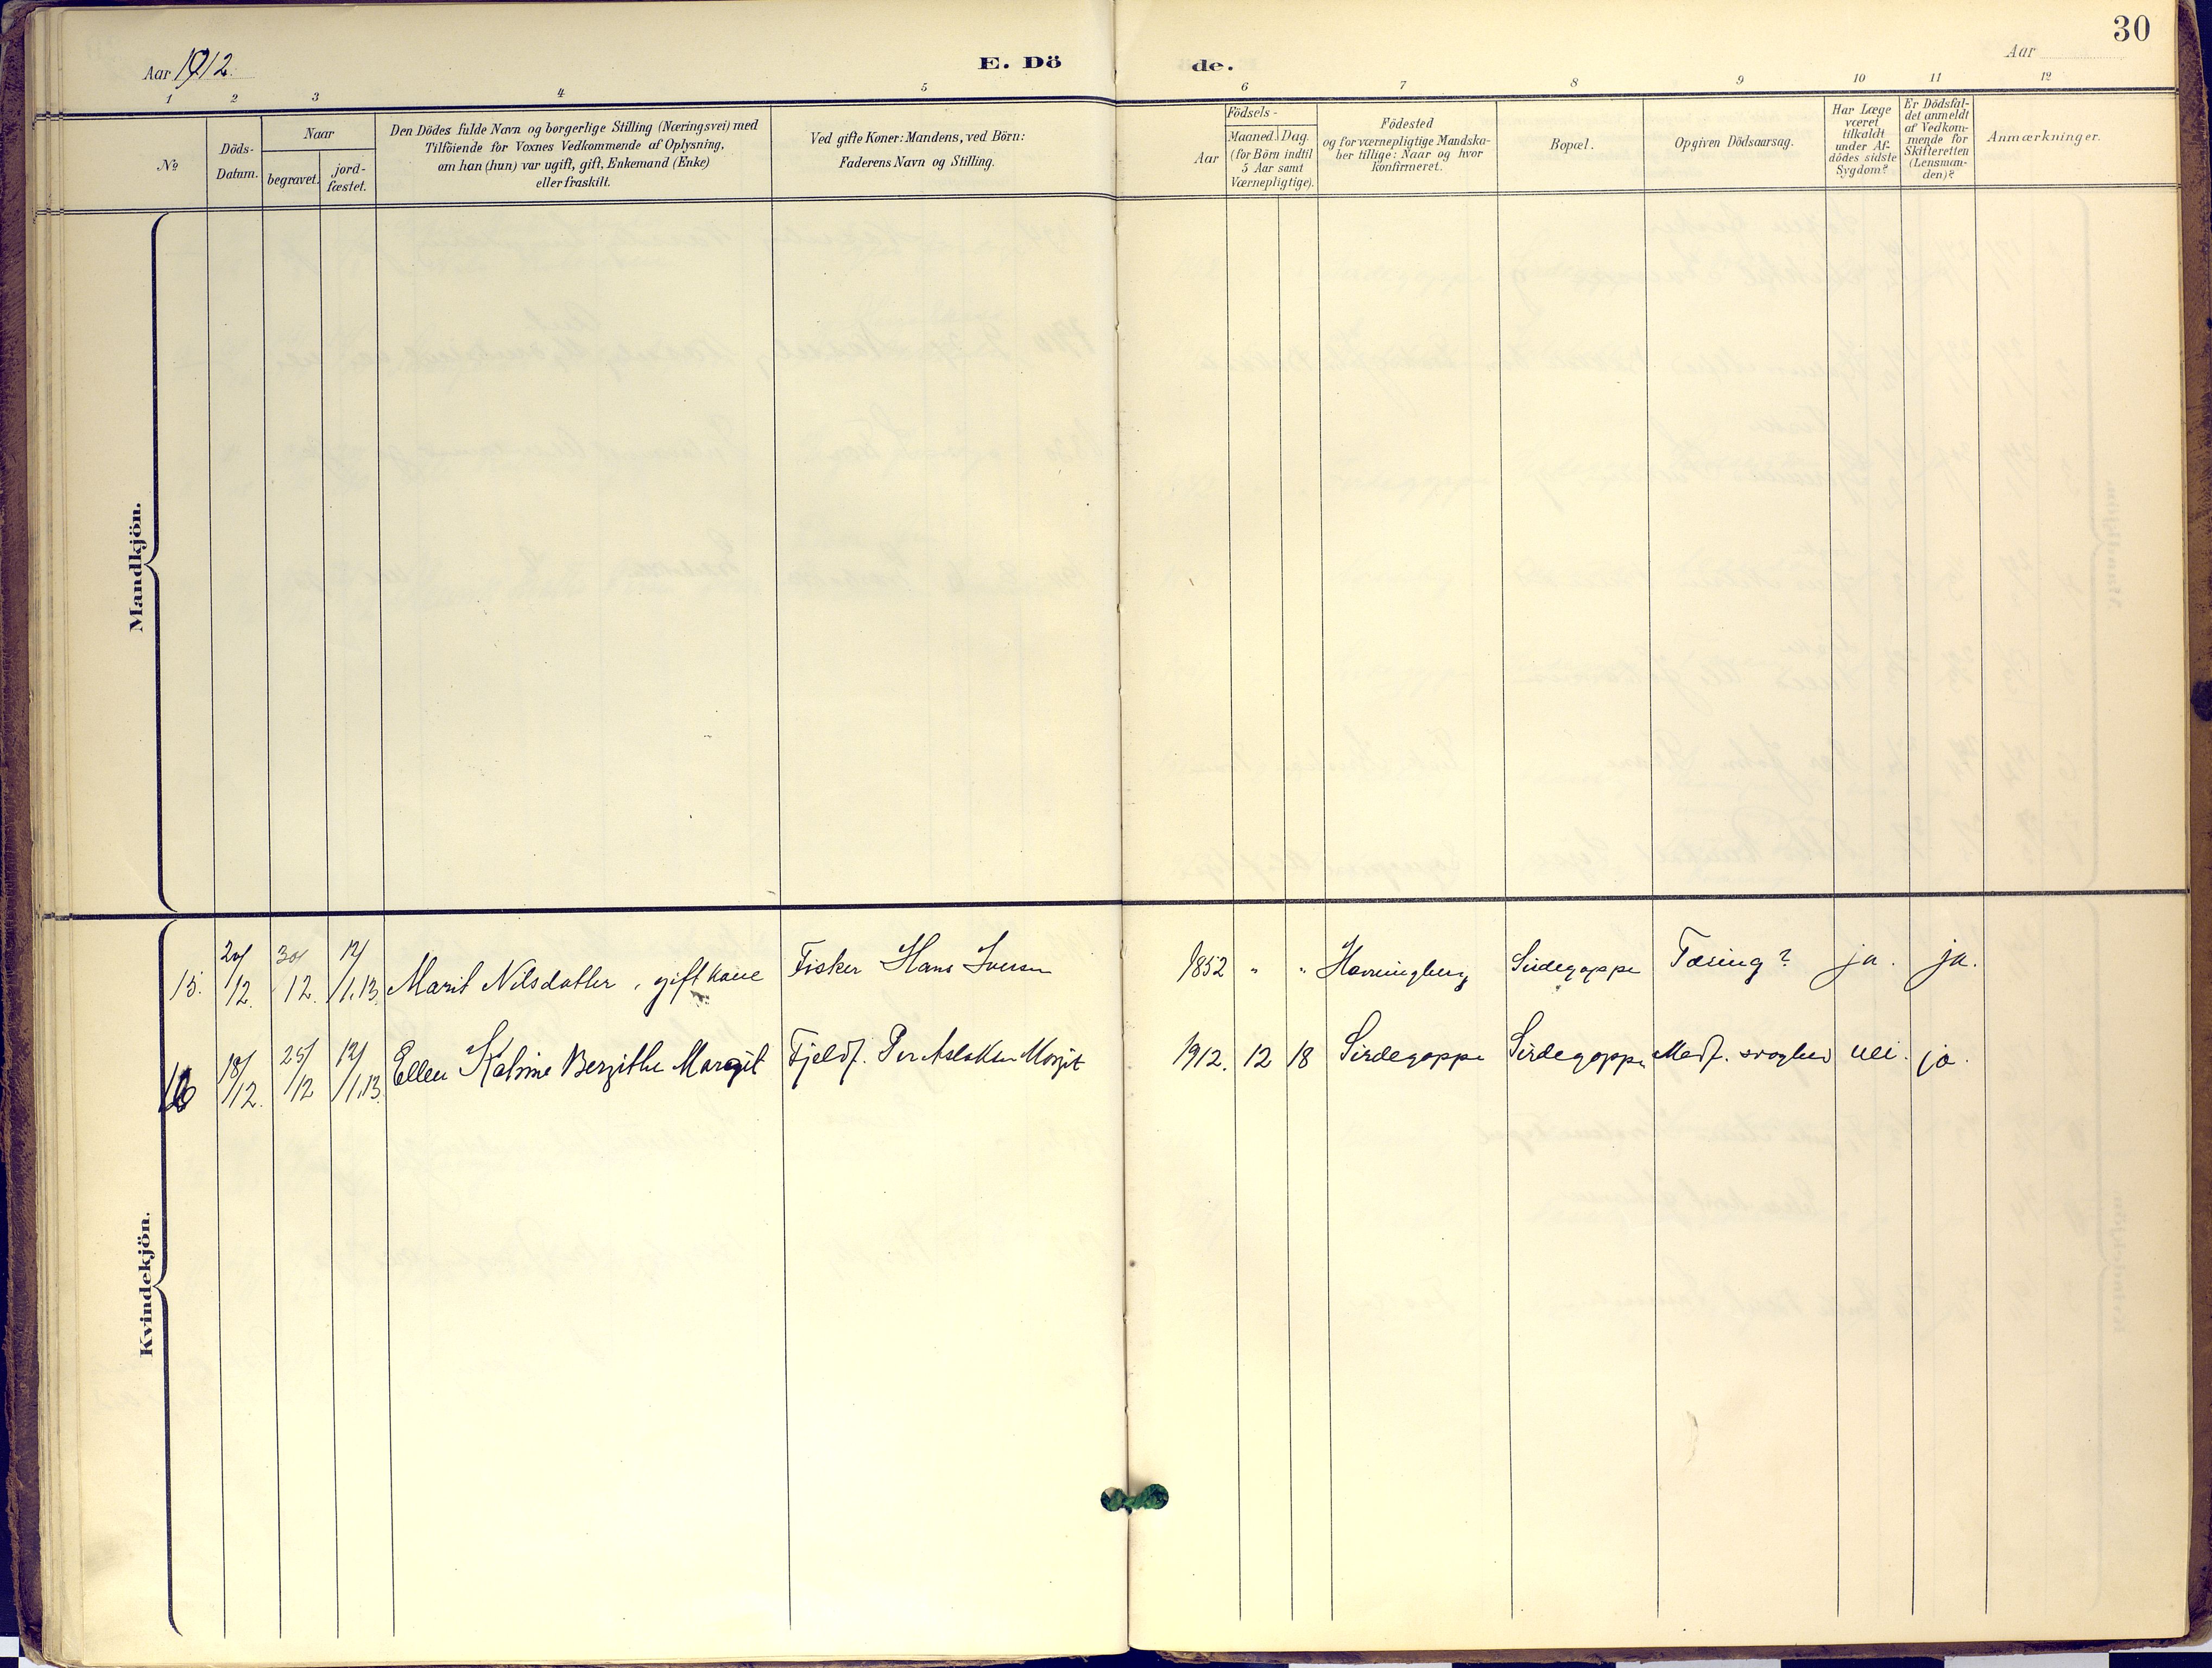 30
Aar 1912.
E. Dö de.
Aar
1 2 3 4 5 6 7 8 9 10 11 12
No
Döds-
Datum.
Naar
begravet.
jord-
fæstet.
Den Dödes fulde Navn og borgerlige Stilling (Næringsvei) med
Tilföiende for Voxnes Vedkommende af Oplysning,
om han (hun) var ugift, gift, Enkemand (Enke)
eller fraskilt.
Ved gifte Koner: Mandens, ved Börn:
Faderens Navn og Stilling.
Födsels-
Aar
Maaned. Dag.
(for Börn indtil
5 Aar samt
Værnepligtige).
Födested
og for værnepligtige Mandska-
ber tillige: Naar og hvor
konfirmeret.
Bopæl.
Opgiven Dödsaarsag.
Har Læge
været
tilkaldt
under Af-
dödes sidste
Sygdom?
Er Dödsfal-
det anmeldt
af Vedkom-
mende for
Skifteretten
(Lensman-
den)?
Anmærkninger.
Mandkjön.
Kvindekjön.
15. 20/12. 30/12. 12/1.13. Marit Nilsdatter, gift kone Fisker Hans Iversen 1852 " " Havningberg Sirdegoppe Tæring? ja. ja.
16 18/12. 25/12 12/1.13. Ellen Katrine Bergithe Margit Fjeldf. Per Aslaksen 1912. 12 18 Sirdegoppe Sirdegoppe Medf. svaghed nei. ja.